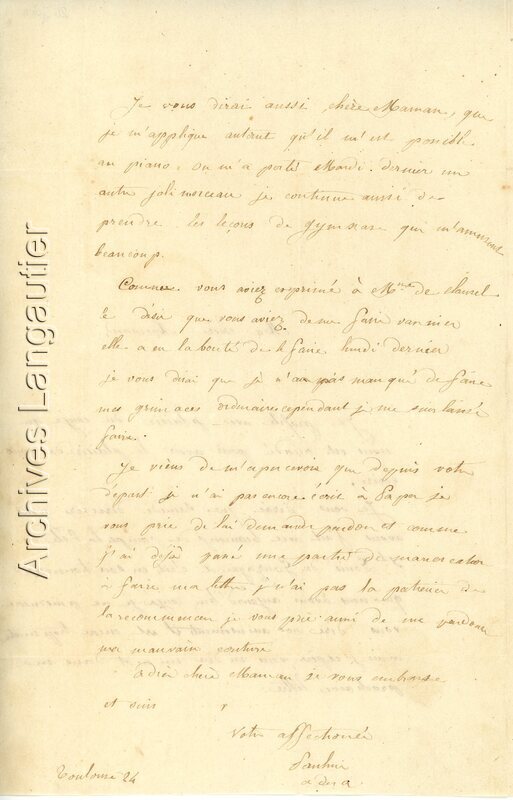 Je vous dirai aussi, chère Maman, que
je m'applique autant qu'il m'est possible
au piano. On m'a porté Mardi dernier un
autre joli morceau je continue aussi de
prendre les leçons de gymnase qui m'amusent
beaucoup.
Comme vous aviez exprimé à Mme de
le désir que vous aviez de me faire
elle a eu la bonté de le faire lundi dernier
je vous dirai que je n'ai pas manqué de faire
mes grimaces ordinaire cependant je me suis laissé
faire.
Je viens de m'apercevoir que depuis votre
départ je n'ai pas encore écrit à Papa je
vous prie de lui demander pardon et comme
j'ai déjà passé une partie de ma
à faire ma lettre je n'ai pas la patience de
la recommencer je vous prie aussi de me pardonner
ma mauvaise écriture
adieu chère Maman je vous embrasse
et suis
votre affectionnée
Toulouse 24
Archives Langautier